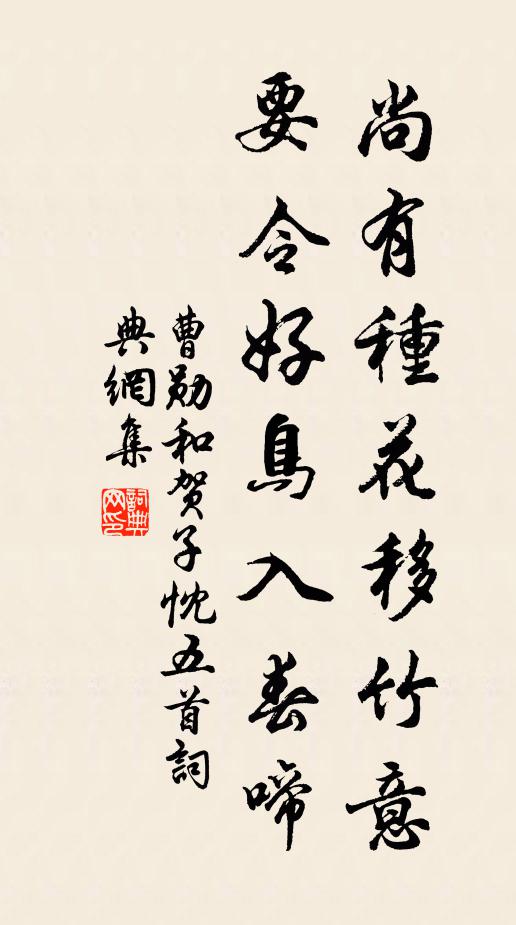 尚有種花移竹意
要令好鳥入春啼
曹勛和賀子忱五首詞
典網集
詞典网印